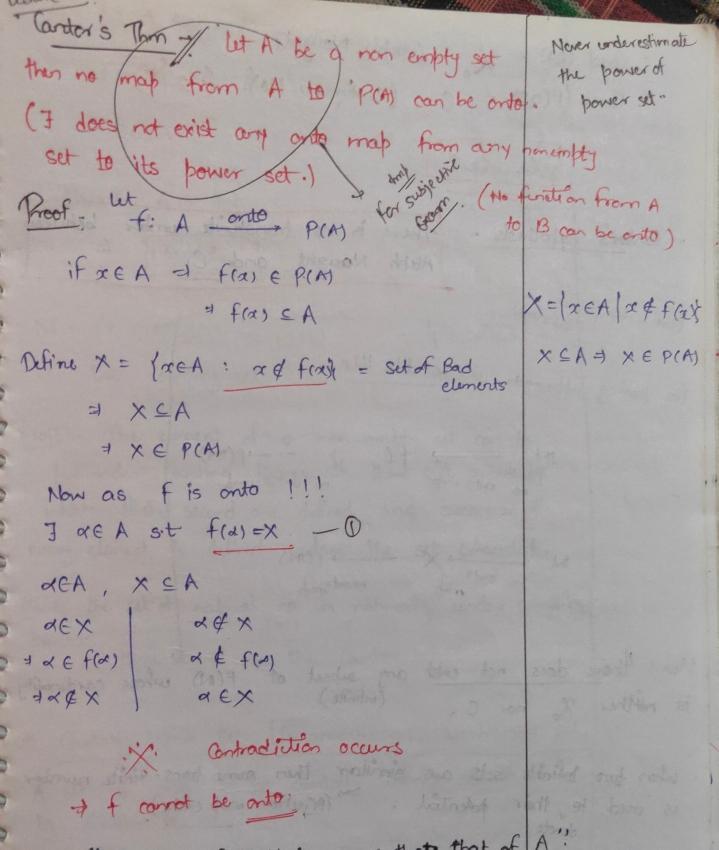 Cantor's Thm → Let A be a non empty set
then no map from A to P(A) can be onto.
(∃ does not exist any onto map from any nonempty
set to its power set.)
Never underestimate
the power of
power set"
Imp
for subjective
Exam.
(No function from A
to B can be onto)
Proof: Let
f: A onto→ P(A)
if x ∈ A ⇒ f(x) ∈ P(A)
⇒ f(x) ⊆ A
Define X = {x∈A : x ∉ f(x)} = set of Bad
elements
⇒ X ⊆ A
⇒ X ∈ P(A)
X = {x∈A | x ∉ f(x)}
X ⊆ A ⇒ X ∈ P(A)
Now as f is onto !!!
∃ α ∈ A s.t f(α) = X — ①
α∈A, X ⊆ A
α∈X | α ∉ X
⇒ α ∈ f(α) | α ∉ f(α)
⇒ α ∉ X | α ∈ X
Contradiction occurs
⇒ f cannot be onto.
that of A"